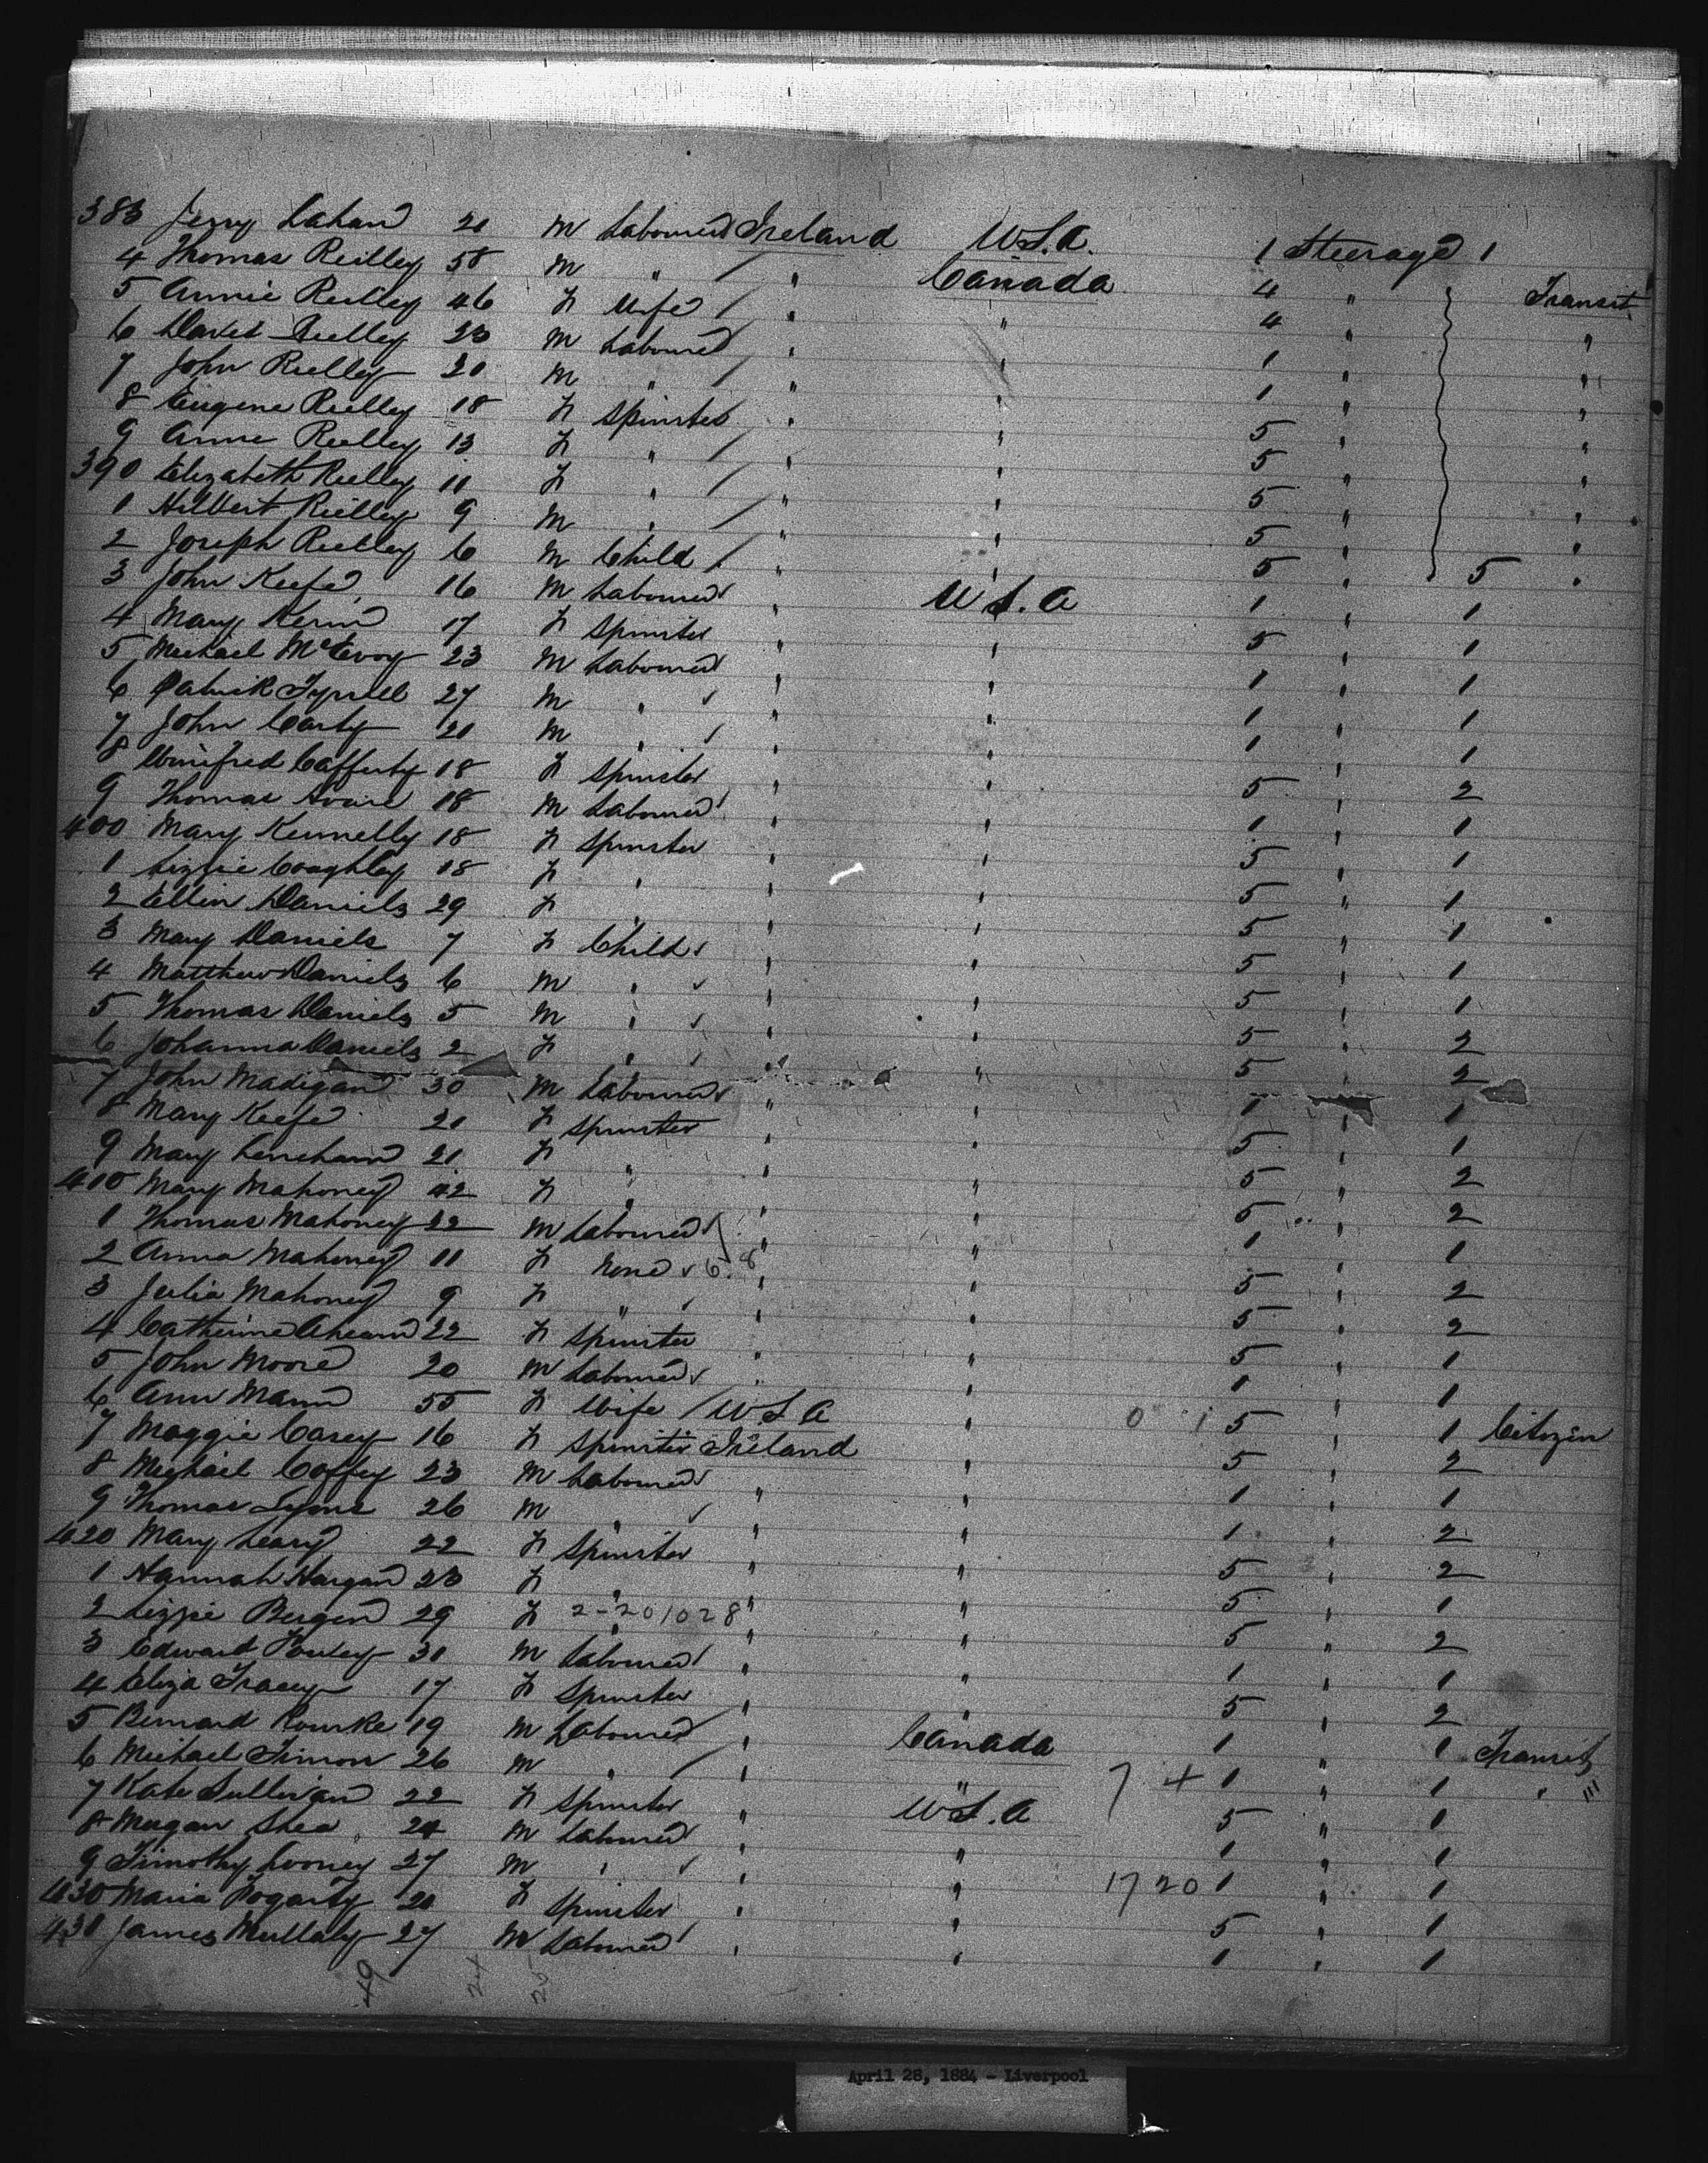 383 Jerry Lahan 20 M Labourer Ireland U.S.A. 1 Steerage 1
4 Thomas Reilley 58 M " / " Canada 4 " Transit
5 Annie Reilley 46 F Wife / " " 4 " "
6 David Reilley 23 M Labourer " " 1 " "
7 John Reilley 20 M " / " " 1 " "
8 Eugene Reilley 18 F Spinster " " 5 " "
9 Anne Reilley 13 F " / " " 5 " "
390 Elizabeth Reilley 11 F " / " " 5 " "
1 Hilbert Reilley 9 M " / " " 5 " "
2 Joseph Reilley 6 M Child / " " 5 " 5 "
3 John Keefe 16 M Labourer " U.S.A 1 " 1
4 Mary Kerin 17 F Spinster " " 5 " 1
5 Michael McEvoy 23 M Labourer " " 1 " 1
6 Patrick Tyrrell 27 M " " " 1 " 1
7 John Carty 20 M " " " 1 " 1
8 Winifred Cafferty 18 F Spinster " " 5 " 2
9 Thomas 18 M Labourer " " 1 " 1
400 Mary Kennelly 18 F Spinster " " 5 " 1
1 Lizzie Coughley 18 F " " " 5 " 1
2 Ellin Daniels 29 F " " 5 " 1
3 Mary Daniels 7 F Child " " 5 " 1
4 Matthew Daniels 6 M " " " 5 " 1
5 Thomas Daniels 5 M " " " 5 " 2
6 Johanna Daniels 2 F " " " 5 " 2
7 John Madigan 30 M Labourer " " 1 " 1
8 Mary Keefe 20 F Spinster " " 5 " 1
9 Mary Lenehan 21 F " " " 5 " 2
410 Mary Mahoney 42 F " " " 5 " 2
1 Thomas Mahoney 22 M Labourer " " 1 " 1
2 Anna Mahoney 11 F None 6.8 " " 5 " 2
3 Julia Mahoney 9 F " " " 5 " 2
4 Catherine Ahearn 22 F Spinster " " 5 " 1
5 John Moore 20 M Labourer " " 1 " 1
6 Ann Mann 55 F Wife / U.S.A " 0 1 5 " 1 Citozin
7 Maggie Casey 16 F Spinster Ireland " 5 " 2
8 Michael Coffey 23 M Labourer " " 1 " 1
9 Thomas Lyons 26 M " " " 1 " 2
420 Mary Leary 22 F Spinster " " 5 " 2
1 Hannah Hargan 23 F " " " 5 " 1
2 Lizzie Bergen 29 F " 2-201028 " " 5 " 2
3 Edward 30 M Labourer " " 1 " 1
4 Eliza Tracey 17 F Spinster " " 5 " 2
5 Bernard Rourke 19 M Labourer " Canada 1 " 1 Transit
6 Michael Timon 26 M " / " " 7 4 1 " 1 "
7 Kate Sullivan 22 F Spinster " U.S.A 5 " 1
8 Morgan Shea 24 M Labourer " " 1 " 1
9 Timothy Looney 27 M " " " 1720 1 " 1
430 Maria Fogarty 20 F Spinster " " 5 " 1
431 James Mullaly 27 M Labourer " " 1 " 1
49 24 25
April 28, 1884 - Liverpool